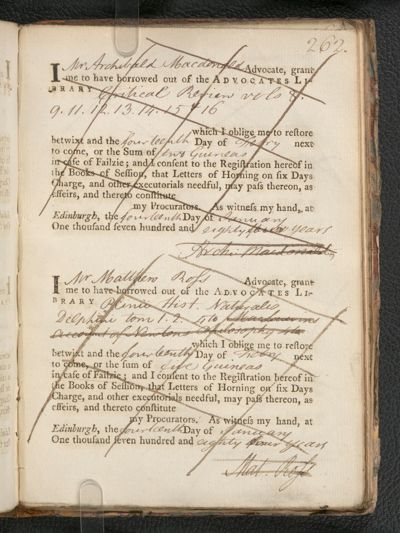 262.
I Mr Archibald Macdonald Advocate, grant
me to have borrowed out of the ADVOCATES LI-
BRARY Critical Review vols 8.
9. 11. 12. 13. 14. 15 & 16
which I oblige me to restore
betwixt and the fourteenth Day of Febry next
to come, or the Sum of two Guineas
in case of Failzie; and I consent to the Registration hereof in
the Books of Session, that Letters of Horning on six Days
Charge, and other executorials needful, may pass thereon, as
effeirs, and thereto constitute
my Procurators. As witness my hand, at
Edinburgh, the fourteenth Day of January
One thousand seven hundred and eighty four years
Archd Macdonald
I Mr Matthew Ross Advocate, grant
me to have borrowed out of the ADVOCATES LI-
BRARY Plinii Hist. Naturalis
Delphini tom 1. 2. 4to Maclaurins
account of Newtons Philosophy 4to
which I oblige me to restore
betwixt and the fourteenth Day of Febry next
to come, or the sum of five Guineas
in case of Failzie; and I consent to the Registration hereof in
the Books of Session, that Letters of Horning on six Days
Charge, and other executorials needful, may pass thereon, as
effeirs, and thereto constitute
my Procurators. As witness my hand, at
Edinburgh, the fourteenth Day of January
One thousand seven hundred and eighty four years
Mat. Ross